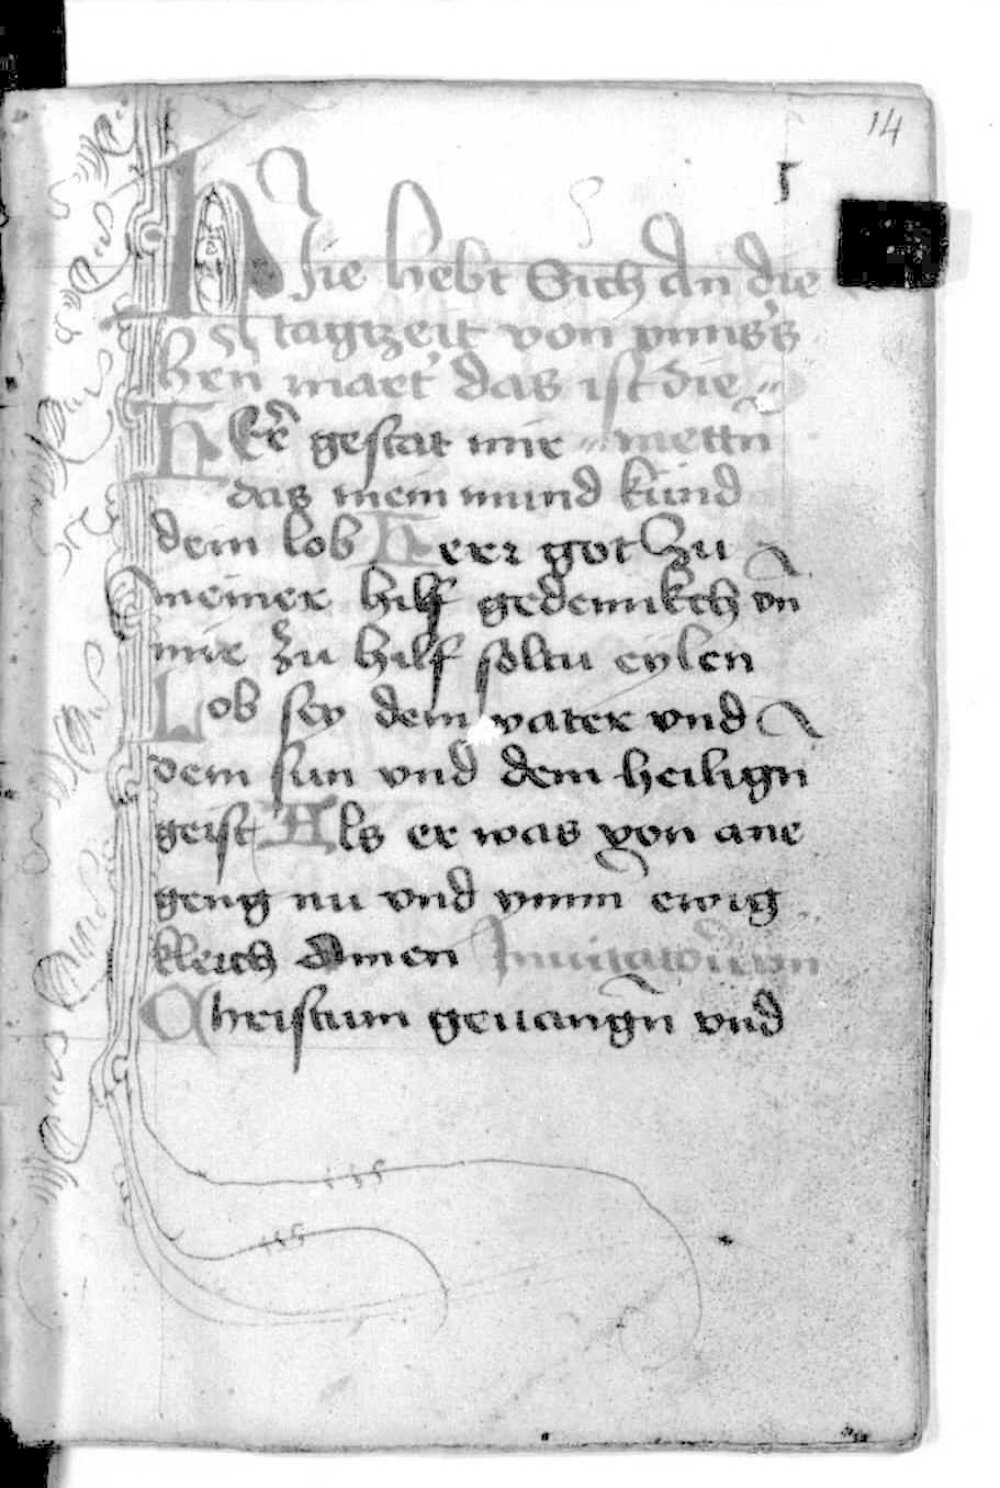 14
5
Hie hebt Sich an die
tagtzeit von vnns's
hen mart' das ist die
HErr gestat mir mettn
das mein mund kund
dein lob Herr got zu
meiner hilf gedennkch vn
mir zu hilf soltu eylen
Lob sey dem vater vnd
dem sun vnd dem heilign
geist Als er was von ane
geng nu vnd ymm ewig
kleich Amen
Christum geuangn vnd